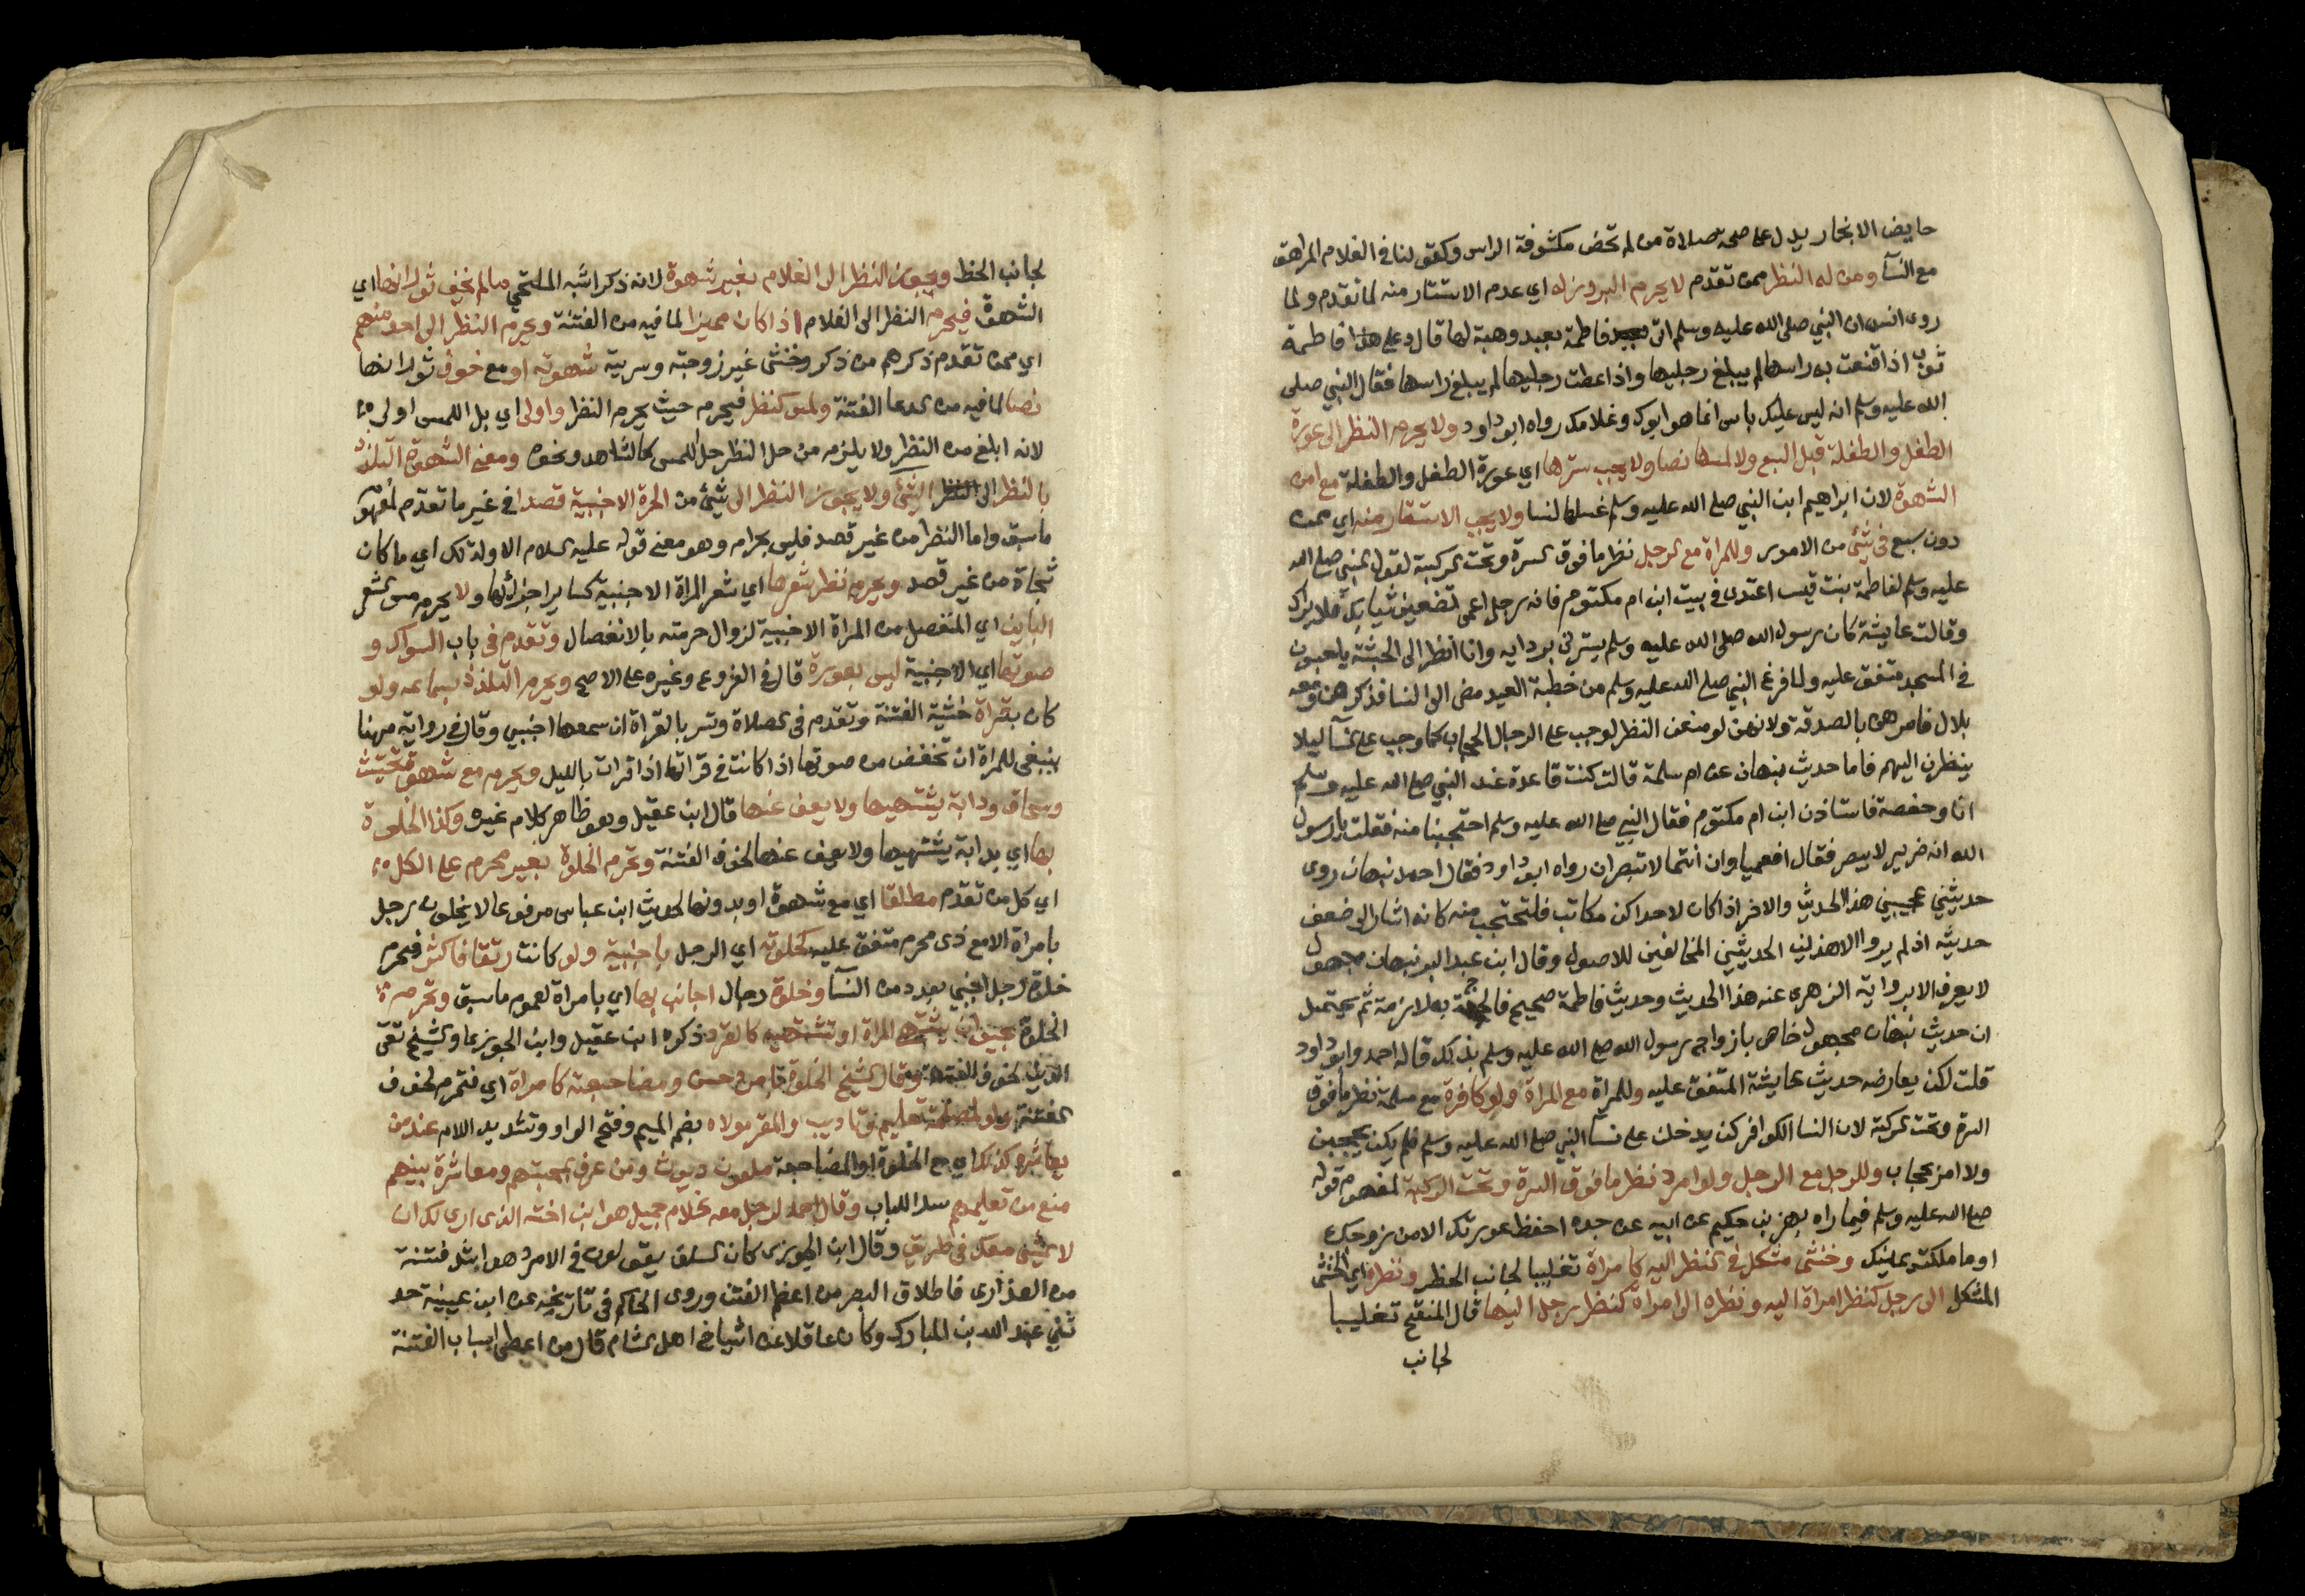 حايض الا بخمار يدل على صحة صلاة من لم تحض مكشوفة الراس وكقولنا في الغلام المراهق
مع النسآ ومن له النظر ممن تقدم لا يحرم البروز له اي عدم الاستتار منه لما تقدم ولما
روى انس ان النبي صلى الله عليه وسلم اتى فاطمة بعبد وهبة لها قال وعلى فاطمة
ثوب اذا قنعت به راسها لم يبلغ رجليها واذا غطت رجليها لم يبلغ راسها فقال النبي صلى
الله عليه وسلم انه ليس عليك باس انما هو ابوك وغلامك رواه ابو داود ولا يحرم النظر الى عورة
الطفل والطفلة قبل السبع ولا لمسها نصا ولا يجب سترها اي عورة الطفل والطفلة مع امن
الشهوة لان ابراهيم ابن النبي صلى الله عليه وسلم غسله النسا ولا يجب الاستتار منه اي ممن
دون سبع في شئ من الامور وللمراة مع الرجل نظر ما فوق السرة وتحت الركبة لقول النبي صلى الله
عليه وسلم لفاطمة بنت قيس اعتدي في بيت ابن ام مكتوم فانه رجل اعمى تضعين ثيابك فلا يراك
وقالت عايشة كان رسول الله صلى الله عليه وسلم يسترني بردايه وانا انظر الى الحبشة يلعبون
في المسجد متفق عليه ولما فرغ النبي صلى الله عليه وسلم من خطبة العيد مضى الى النسا فذكرهن ومعه
بلال فامرهن بالصدقة ولانهن لو منعن النظر لوجب على الرجال الحجاب كما وجب على النسآ ليلا
ينظرن اليهم فاما حديث نبهان عن ام سلمة قالت كنت قاعدة عند النبي صلى الله عليه وسلم
انا وحفصة فاستاذن ابن ام مكتوم فقال النبي صلى الله عليه وسلم احتجبنا منه فقلت يارسول
الله انه ضرير لا يبصر فقال افعمياوان انتما لا تبصران رواه ابو داود فقال احمد نبهان روى
حديثين عجيبين هذا الحديث والاخر اذا كان لاحداكن مكاتب فلتحتجب منه كانه اشار الى ضعف
حديثه اذ لم يروا الا هذين الحديثين المخالفين للاصول وقال ابن عبد البر نبهان مجهول
لا يعرف الا برواية الزهري عنه هذا الحديث وحديث فاطمة صحيح فالحجة به لازمة ثم يحتمل
ان حديث نبهان مجهول خاص بازواج رسول الله صلى الله عليه وسلم بذلك قاله احمد وابو داود
قلت لكن يعارضه حديث عايشة المتفق عليه وللمراة مع المراة ولو كافرة مع مسلمة نظر ما فوق
السرة وتحت الركبة لان النسا الكوافر كن يدخلن على نسآ النبي صلى الله عليه وسلم فلم يكن يحجبن
ولا امرن بحجاب وللرجل مع الرجل ولو امرد نظر ما فوق السرة وتحت الركبة لمفهوم قوله
صلى الله عليه وسلم فيما رواه بهز بن حكيم عن ابيه عن جده احفظ عورتك الا من زوجتك
او ما ملكت يمينك وخنثى مشكل في النظر اليه كامراة تغليبا لجانب الحظر ونظره اي الخنثى
المشكل الى رجل كنظر امراة اليه ونظره الى امراة كنظر رجل اليها قال المنقح تغليبا
لجانب
لجانب الحظر ويجوز النظر الى الغلام بغير شهوة لانه ذكر اشبه الملتحي ما لم يخف ثورانها اي
الشهوة فيحرم النظر الى الغلام اذا كان مميزا لما فيه من الفتنة ويحرم النظر الى احد منهم
اي ممن تقدم ذكرهم من ذكر وخنثى غير زوجته وسريته لشهوة او مع خوف ثورانها
نصا لما فيه من الدعا الفتنة ولمس كنظر فيحرم حيث يحرم النظر واولى اي بل اللمس اولى
لانه ابلغ من النظر ولا يلزم من حل النظر حل اللمس كالشاهد ونحوه ومعنى الشهوة التلذذ
بالنظر الى الشئ ولا يجوز النظر الى شئ من الحرة الاجنبية قصدا في غير ما تقدم لمفهوم
ما سبق واما النظر من غير قصد فليس بحرام وهو معنى قوله عليه السلام الاولة لك اي ما كان
فجاة من غير قصد ويحرم نظر شعرها اي شعر المراة الاجنبية كساير اجزائها ولا يحرم مس شعر
الباين اي المنفصل من المراة الاجنبية لزوال حرمته بالانفصال وتقدم في باب السواك و
صوتها اي الاجنبية ليس بعورة قال في الفروع وغيره على الاصح ويحرم التلذذ بسماعه ولو
كان بقراة خشية الفتنة وتقدم في الصلاة وتسر بالقراة ان سمعها اجنبي وقال في رواية مهنا
ينبغي للمراة ان تخفض من صوتها اذا كانت في قراتها اذا قرات بالليل ويحرم مع شهوة تخنيث
وسحاق ودابة يشتهيها ولا يعف عنها قال ابن عقيل وهو ظاهر كلام غيره وكذا الخلوة
بها اي بدابة يشتهيها ولا يعف عنها لخوف الفتنة وتحرم الخلوة بغير محرم على الكل
اي كل من تقدم مطلقا اي مع شهوة او بدونها لحديث ابن عباس مرفوعا لا يخلون رجل
بامراة الا مع ذي محرم متفق عليه كخلوته اي الرجل باجنبية ولو كانت رتقا فاكثر فتحرم
خلوة رجل اجنبي بعدد من النسآ وخلوة رجال اجانب بها اي بامراة لعموم ما سبق وتحرم
الخلوة بحيوان يشتهي المراة او تشتهيه كالقرد ذكره ابن عقيل وابن الجوزي والشيخ تقي
الدين لخوف الفتنة وقال الشيخ الخلوة بامرد حسن ومضاجعته كامراة اي فتحرم لخوف
الفتنة ولو لمصلحة تعليم وتاديب والمقر مولاه بضم الميم وفتح الواو وتشديد اللام عند من
يعاشره كذلك اي مع الخلوة او المضاجعة ملعون ديوث ومن عرف بمحبتهم ومعاشرة بينهم
منع من تعليمهم سدا للباب وقال احمد لرجل معه غلام جميل هو ابن اخته الذي ارى لك ان
لا يمشي معك في طريق وقال ابن الجوزي كان السلف يقولون في الامرد هو اشد فتنة
من العذارى فاطلاق البصر من اعظم الفتن وروى الحاكم في تاريخه عن ابن عيينة حد
ثني عبد الله بن المبارك وكان عاقلا عن اشياخ اهل الشام قال من اعطى اسباب الفتنة